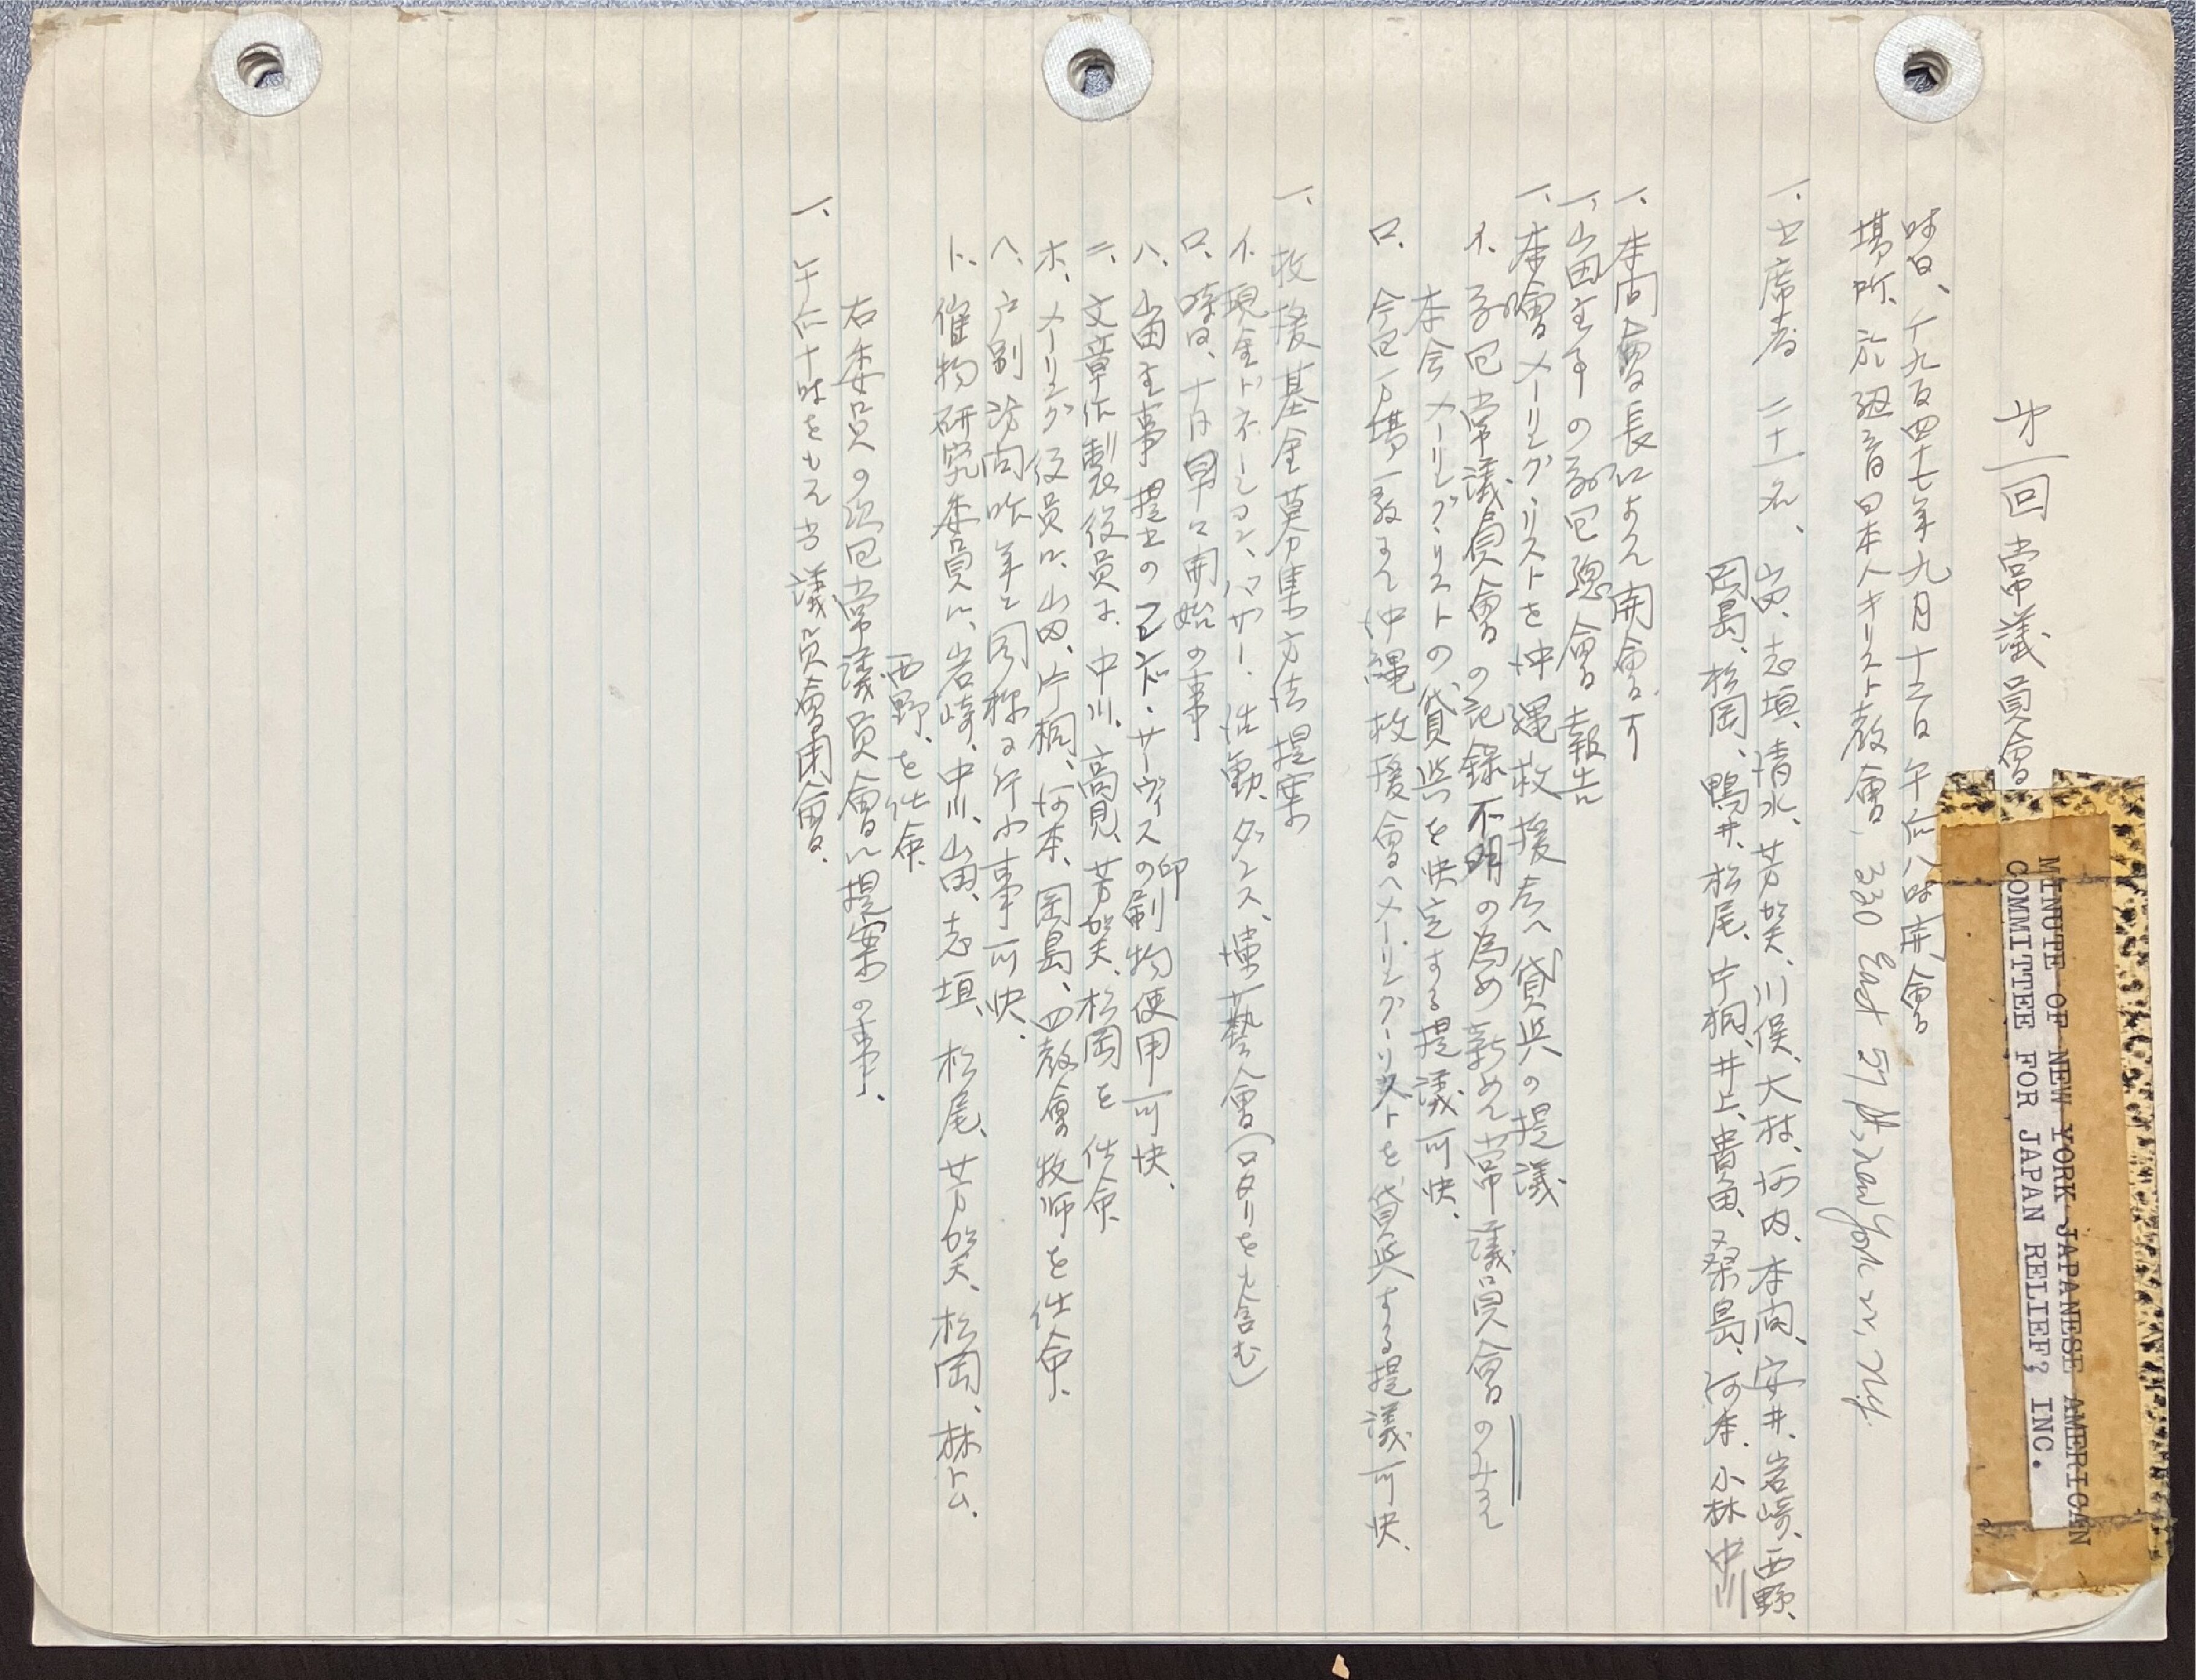 MINUTE OF NEW YORK JAPANESE AMERICAN
COMMITTEE FOR JAPAN RELIEF? INC.
才一回 常議員會
時日、千九百四十七年九月十二日 午后八時開會
場所、於紐育日本人キリスト教會、330 East 57 St, New York 22, N.Y.
一、出席者 二十一名、山田、志垣、清水、芳賀、川俣、大林、河内、本間、安井、岩崎、西野、
岡島、松岡、鴨井、松尾、片桐、井上、貴魚、桑島、河本、小林、中川
一、本間會長によって開會す
一、山田主事の前回總會報告
一、本會メーリング・リストを沖縄救援会へ貸与の提議
イ、前回常議員會の記錄不明の為め新めて常議員會のみにて
本会メーリング・リストの貸与を決定する提議可決、
ロ、今回一場一致して沖縄救援會へメーリング・リストを貸与する提議可決、
一、救援基金募集方法提案
イ、現金ドネーション、バザー、活動、ダンス、演藝會(ロタリを含む)
ロ、時日、十月早々開始の事
ハ、山田主事提出のフード・サーヴィスの印刷物使用可決、
ニ、文章作製役員に、中川、高見、芳賀、松岡を任命
ホ、メーリング役員に、山田、片桐、河本、岡島、四教會牧師を任命、
ヘ、戸別訪問昨年と同様に行ふ事可決、
ト、催物研究委員に、岩崎、中川、山田、志垣、松尾、芳賀、松岡、林トム、
西野、を任命
右委員の次回常議員會に提案の事、
一、午后十時をもって常議員會閉會、